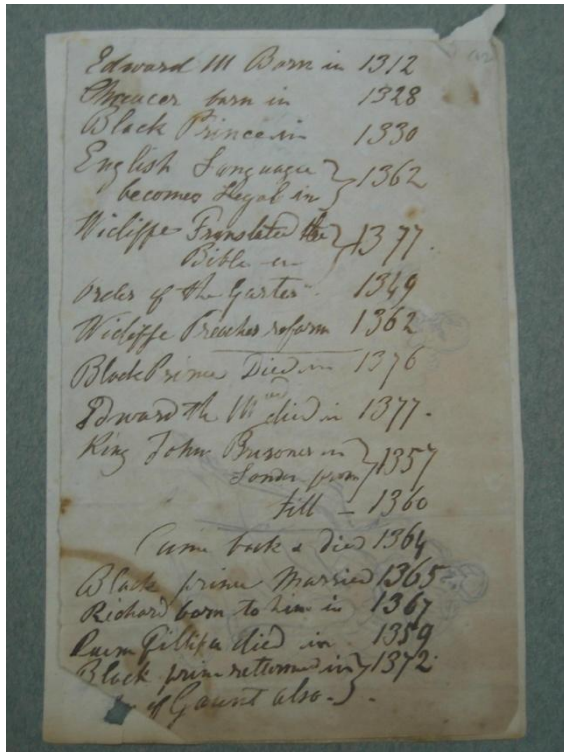 Edward III Born in 1312
Chaucer born in 1328
Black Prince in 1330
English Language } 1362
becomes Legal in
Wicliffe Translated the } 1377.
Bible in
Order of the Garter 1349
Wicliffe Preaches reform 1362
Black Prince Died in 1376
Edward the IIIrd died in 1377.
King John Prisoner in } 1357
London from
till - 1360
Came back & Died 1364
Black prince Married 1365
Richard born to him in 1367
died in 1359
Black prince returned in } 1372
of Gaunt also.